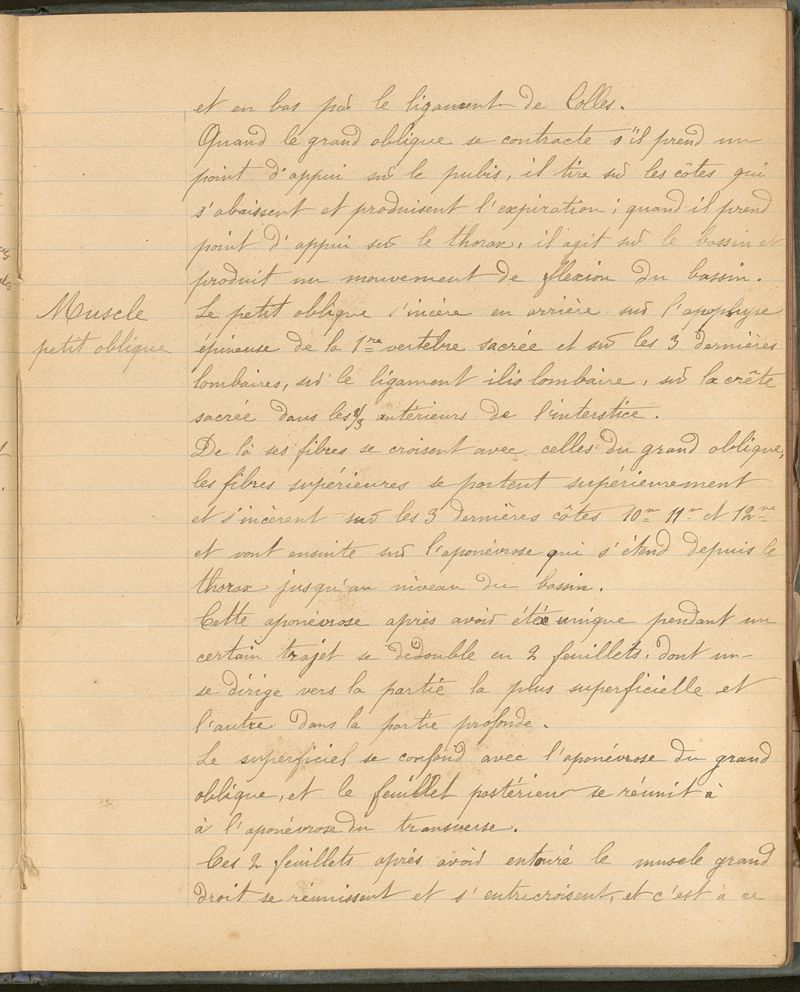 et en bas par le ligament de Colles.
Quand le grand oblique se contracte s'il prend un
point d'appui sur le pubis, il tire sur les côtes qui
s'abaissent et produisent l'expiration; quand il prend
point d'appui sur le thorax, il agit sur le bassin et
produit un mouvement de flexion du bassin.
Muscle
petit oblique
Le petit oblique s'incère en arrière sur l'apophyse
épineuse de la 1re vertèbre sacrée et sur les 3 dernières
lombaires, sur le ligament ilio lombaire, sur la crête
sacrée dans les 2/3 antérieurs de l'interstice.
De là ses fibres se croisent avec celles du grand oblique,
les fibres supérieures se portent supérieurement
et s'incèrent sur les 3 dernières côtes 10me 11me et 12me
et vont ensuite sur l'aponévrose qui s'étend depuis le
thorax jusqu'au niveau du bassin.
Cette aponévrose après avoir été unique pendant un
certain trajet se dédouble en 2 feuillets, dont un
se dirige vers la partie la plus superficielle et
l'autre dans la partie profonde.
Le superficiel se confond avec l'aponévrose du grand
oblique, et le feuillet postérieur se réunit à
à l'aponévrose du transverse.
Ces 2 feuillets après avoir entouré le muscle grand
droit se réunissent et s'entrecroisent, et c'est à ce